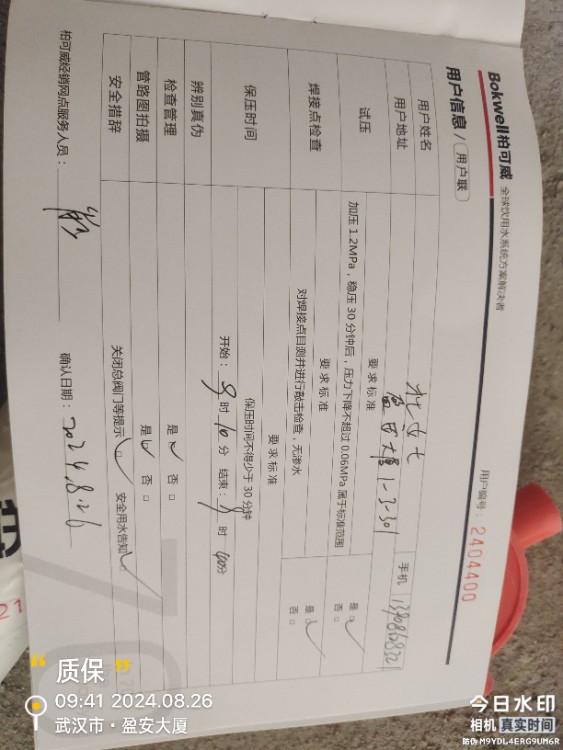 Bokwell柏可威 全球饮用水系统方案解决者
用户编号：2404400
用户信息 / 用户联
用户姓名 杜女士 手机
用户地址 盈安大厦 1-3-301
要求标准
试压 加压 1.2MPa，稳压 30 分钟后，压力下降不超过 0.06MPa 属于标准范围 是 否
要求标准
焊接点检查 对焊接点目测并进行敲击检查，无渗水 是 否
要求标准
保压时间 保压时间不得少于 30 分钟
开始： 9 时 10 分 结束： 9 时 40 分
辨别真伪
检查管理 是 否
管路图拍摄 是 否
安全措辞 关闭总阀门等提示 安全用水告知
柏可威经销网点服务人员： 确认日期： 2024.8.26
21
“ 质保 ”
09:41 2024.08.26
武汉市·盈安大厦
今日水印
相机 真实时间
防伪 M9YDL4ERG9UM6R